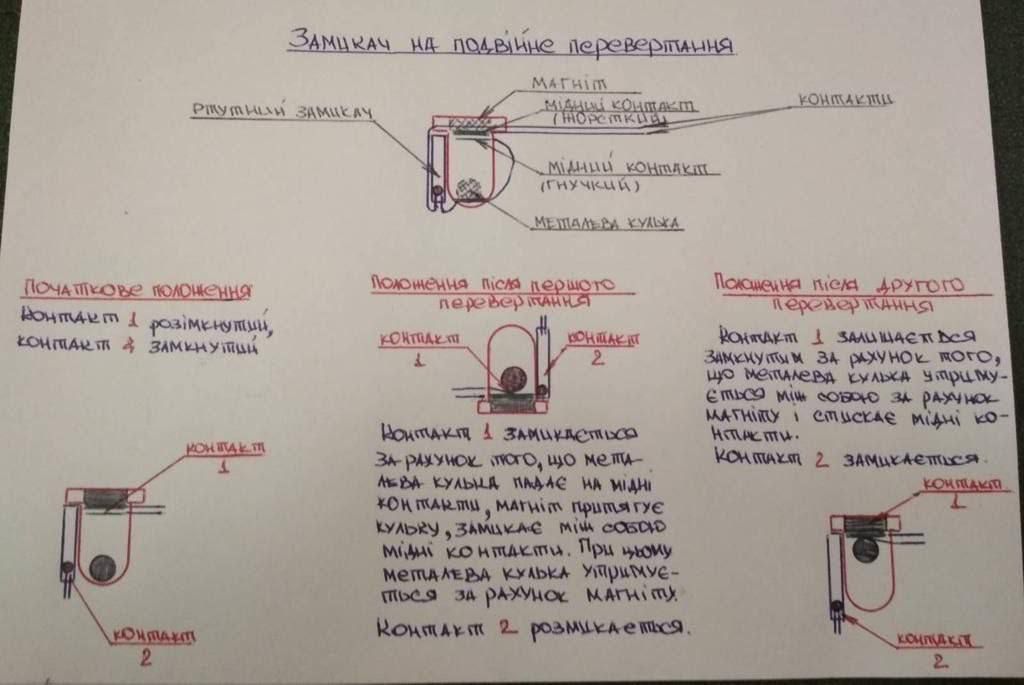 Замикач на подвійне перевертання
магніт
ртутний замикач
мідний контакт
(жорсткий)
контакти
мідний контакт
(гнучкий)
металева кулька
Початкове положення
Контакт 1 розімкнутий,
контакт 2 замкнутий
контакт
1
контакт
2
Положення після першого
перевертання
контакт
1
контакт
2
Контакт 1 замикається
за рахунок того, що мета-
лева кулька падає на мідні
контакти, магніт притягує
кульку, замикає між собою
мідні контакти. При цьому
металева кулька утримує-
ться за рахунок магніту.
Контакт 2 розмикається.
Положення після другого
перевертання
Контакт 1 залишається
замкнутим за рахунок того,
що металева кулька утриму-
ється між собою за рахунок
магніту і стискає мідні ко-
нтакти.
Контакт 2 замикається.
контакт
1
контакт
2